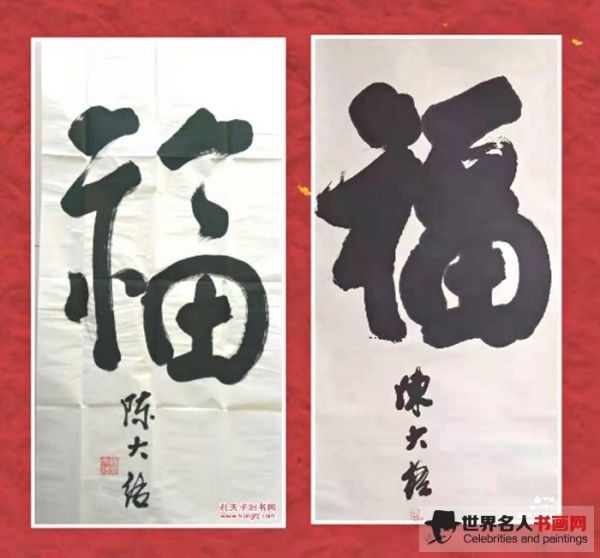 福
陈
大
络
孔夫子旧书网
www.kongfz.com
福
陳
大
世界名人书画网
Celebrities and paintings